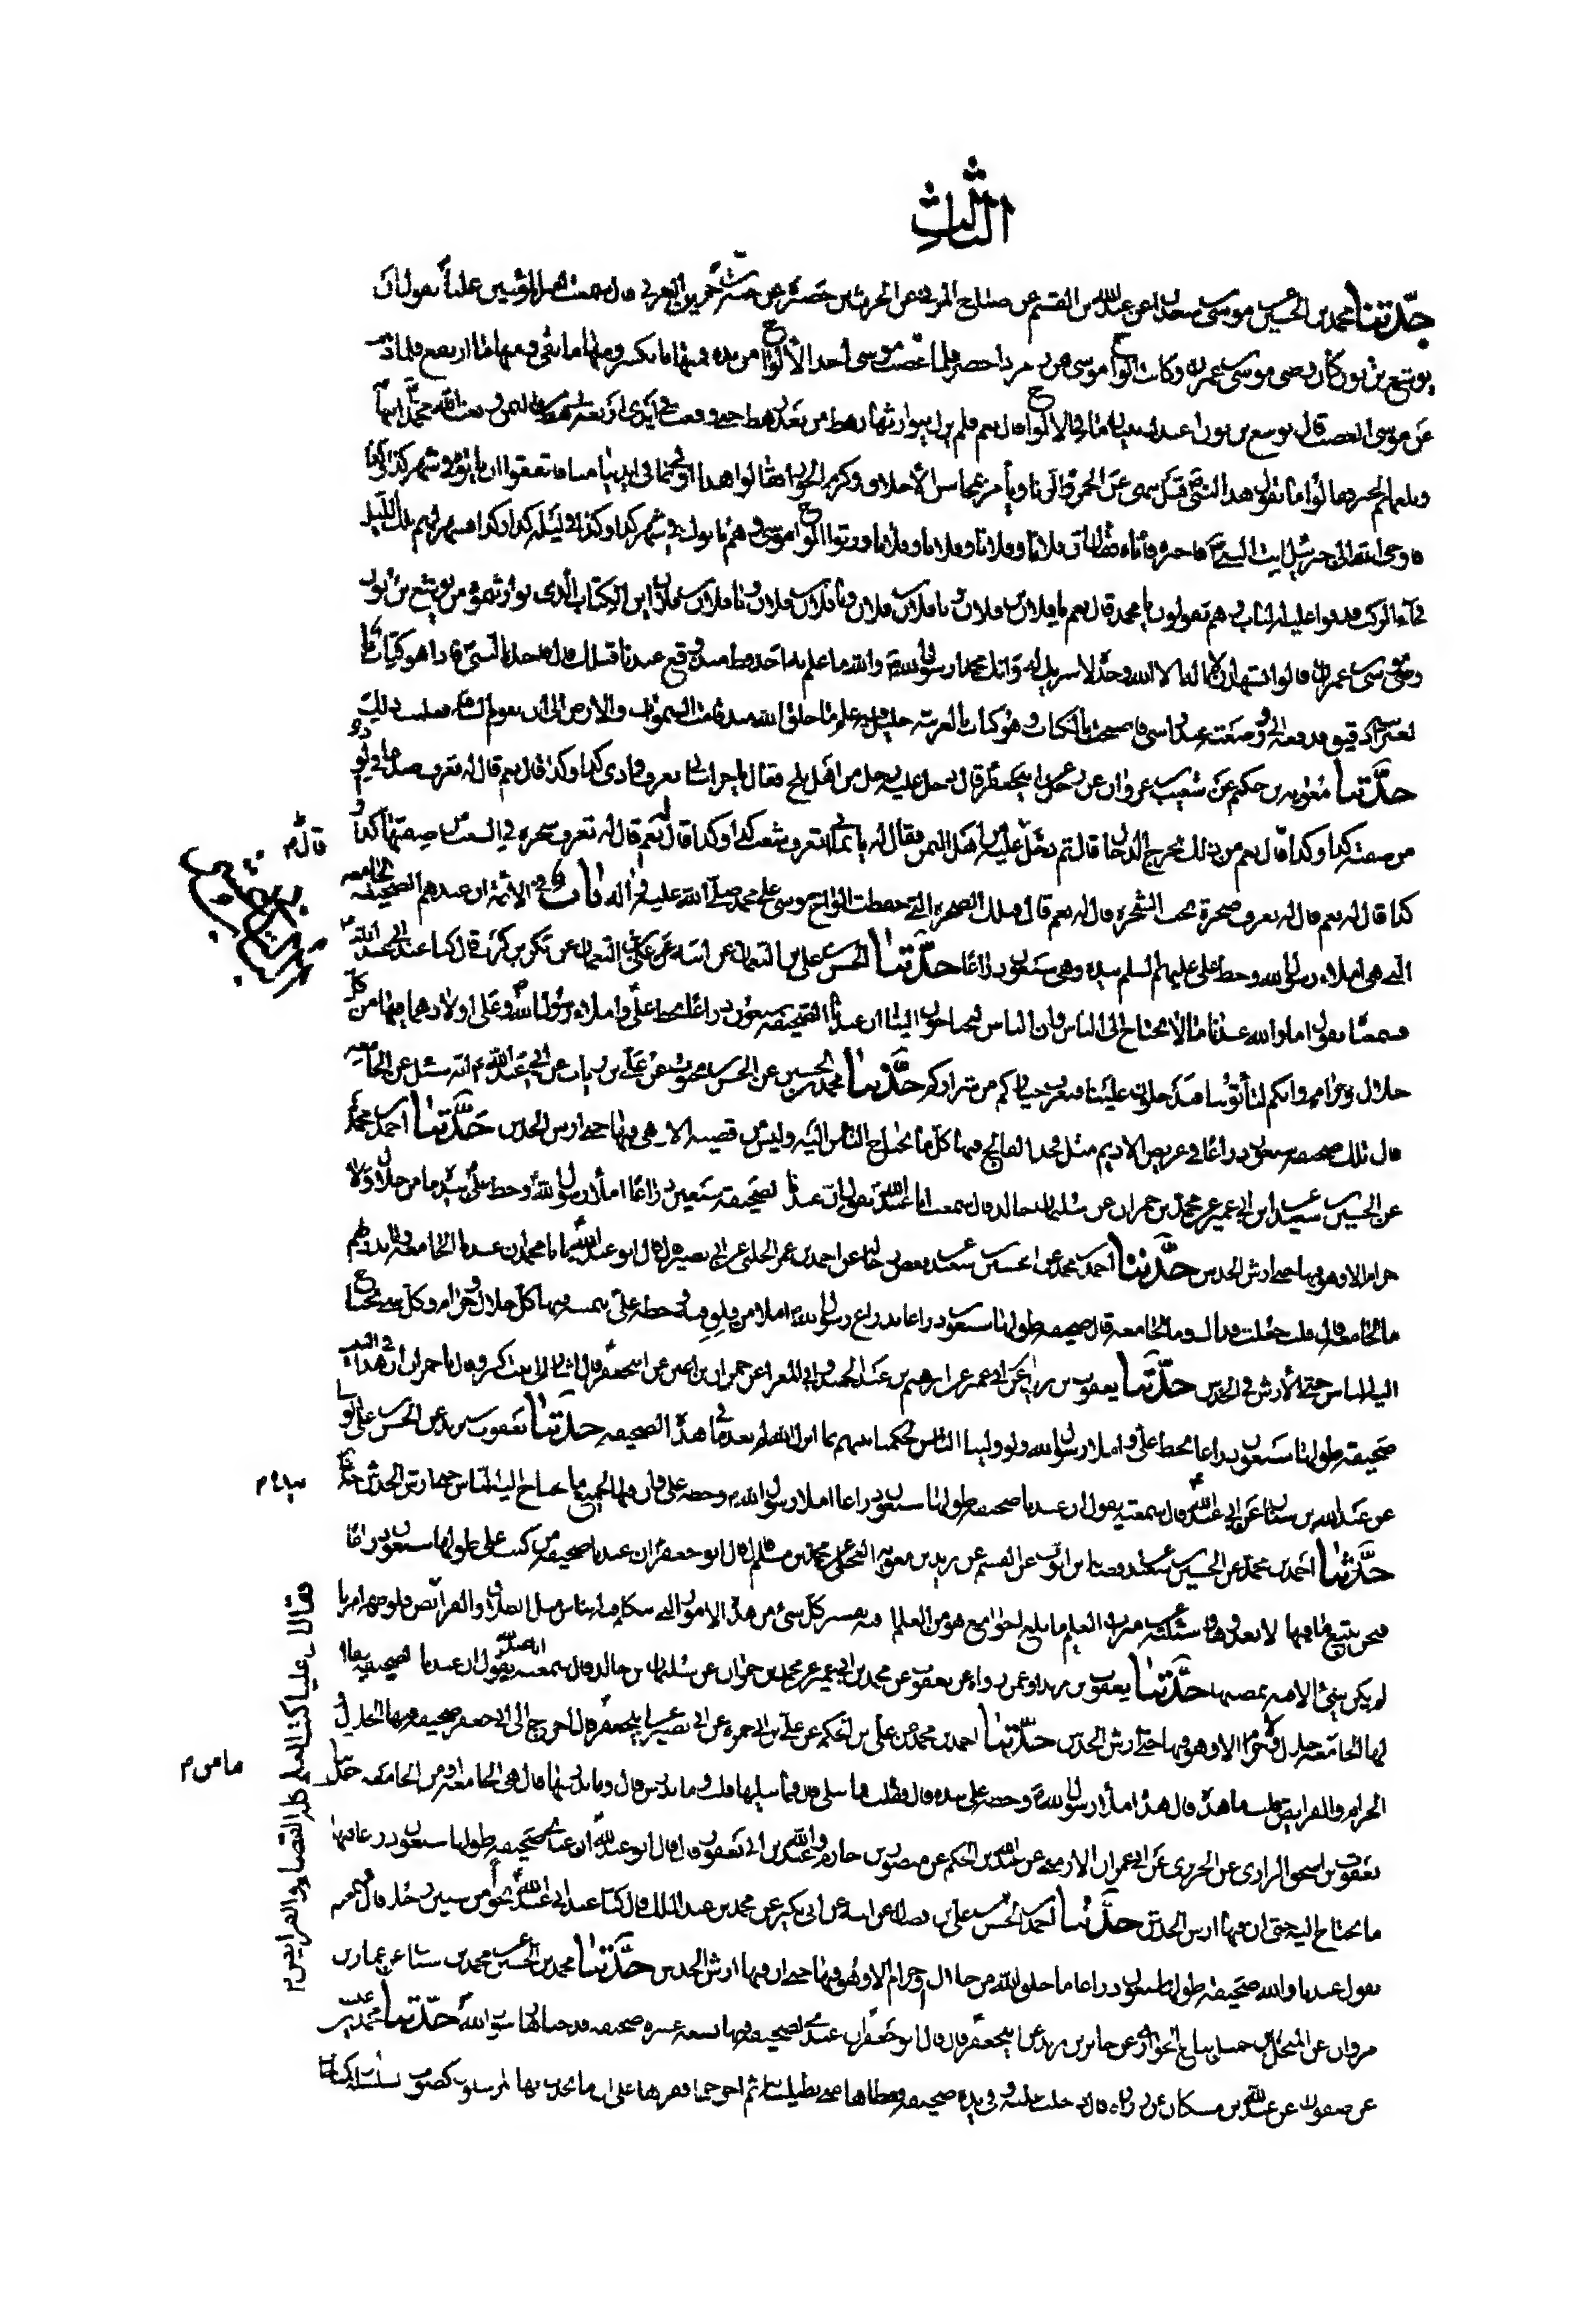 الثالث
حدثنا محمد بن الحسين عن موسى بن سعدان عن عبدالله بن القسم عن صباح المزني عن الحرث بن حصيرة عن حبة بن جوين العرني قال سمعت امير المؤمنين عليا يقول ان
يوشع بن نون كان وصي موسى بن عمران وكانت الواح موسى من زمرد اخضر فلما غضب موسى اخذ الالواح من يده فمنها ما تكسر ومنها ما بقي ومنها ما ارتفع فلما ذهب
عن موسى الغضب قال يوشع بن نون اعندك تبيان ما في الالواح قال نعم فلم يزل يتوارثها رهط من بعد رهط حتى وقعت في ايدي اربعة رهط من اليمن وبعث الله محمدا بتهامة
وبلغهم الخبر فقالوا ما يقول هذا النبي قيل ينهى عن الخمر والزنا ويأمر بمحاسن الاخلاق وكرم الجوار فقالوا هذا اولى بما في ايدينا منا فاتفقوا ان يأتوه في شهر كذا وكذا
فاوحى الله الى جبرئيل ايت النبي فاخبره فأتاه فقال ان فلانا وفلانا وفلانا وفلانا ورثوا الواح موسى وهم يأتوك في شهر كذا وكذا في ليلة كذا وكذا فسهر لهم تلك الليلة
فجاء الركب فدقوا عليه الباب وهم يقولون يا محمد قال نعم يا فلان بن فلان ويا فلان بن فلان ويا فلان بن فلان ويا فلان بن فلان اين الكتاب الذي توارثتموه من يوشع بن نون
وصي موسى بن عمران قالوا نشهد ان لا اله الا الله وحده لا شريك له وانك محمد رسول الله والله ما علم به احد قط منذ وقع عندنا قبلك قال فاخذه النبي فاذا هو كتاب
بالعبرانية دقيق فدفعه الي ووضعته عند رأسي فاصبحت بالكتاب وهو كتاب بالعربية جليل فيه علم ما خلق الله منذ قامت السموات والارض الى ان تقوم الساعة فعلمت ذلك
حدثنا معوية بن حكيم عن شعيب بن غزوان عن رجل عن ابي جعفر قال دخل عليه رجل من اهل بلخ فقال له يا خراساني تعرف وادي كذا وكذا قال نعم قال له تعرف صدعا في الوادي
من صفته كذا وكذا قال نعم من ذلك يخرج الدجال قال ثم دخل عليه رجل من اهل اليمن فقال له يا يماني اتعرف شعب كذا وكذا قال نعم قال له تعرف شجرة في الشعب من صفتها كذا و
كذا قال له نعم قال له تعرف صخرة تحت الشجرة قال له نعم قال فتلك الصخرة التي حفظت الواح موسى على محمد صلى الله عليه وآله باب في الائمة ان عندهم الصحيفة الجامعة
التي هي املاء رسول الله وخط علي عليهما السلم بيده وهي سبعون ذراعا حدثنا الحسن بن علي بن النعمان عن ابيه علي بن النعمان عن بكر بن كرب قال كنا عند ابي عبد الله
فسمعنا يقول اما والله عندنا ما لا نحتاج الى الناس وان الناس ليحتاجون الينا ان عندنا الصحيفة سبعون ذراعا بخط علي واملاء رسول الله وعلى اولادهما فيها من كل
حلال وحرام وانكم لتأتونا فتدخلون علينا فنعرف خياركم من شراركم حدثنا محمد بن الحسين عن الحسن بن محبوب عن علي بن رئاب عن ابي عبد الله انه سئل عن الجامعة
قال تلك صحيفة سبعون ذراعا في عريض الاديم مثل فخذ الفالج فيها كل ما يحتاج الناس اليه وليس من قضية الا هي فيها حتى ارش الخدش حدثنا احمد بن محمد
عن الحسين بن سعيد عن ابن ابي عمير عن محمد بن حمران عن سليمان بن خالد قال سمعت ابا عبد الله يقول ان عندنا لصحيفة سبعين ذراعا املاء رسول الله وخط علي بيده ما من حلال ولا
حرام الا وهو فيها حتى ارش الخدش حدثنا احمد بن محمد عن الحسين بن سعيد عن بعض رجاله عن احمد بن عمر الحلبي عن ابي بصير قال قال ابو عبد الله يا با محمد ان عندنا الجامعة وما يدريهم
ما الجامعة قال قلت جعلت فداك وما الجامعة قال صحيفة طولها سبعون ذراعا بذراع رسول الله املاه من فلق فيه وخطه علي بيمينه فيها كل حلال وحرام وكل شيء يحتاج
اليه الناس حتى الارش في الخدش حدثنا يعقوب بن يزيد عن ابن ابي عمير عن ابرهيم بن عبد الحميد وابي المغرا عن حمران بن اعين عن ابي جعفر قال اشار الى بيت كبير وقال يا حمران ان في هذا البيت
صحيفة طولها سبعون ذراعا بخط علي واملاء رسول الله ولو ولينا الناس لحكمنا بينهم بما انزل الله لم نعد ما في هذه الصحيفة حدثنا يعقوب بن يزيد عن الحسن بن علي الوشا
عن عبد الله بن سنان عن ابي عبد الله قال سمعته يقول ان عندنا صحيفة طولها سبعون ذراعا املاء رسول الله وخطه علي وان فيها لجميع ما يحتاج اليه الناس حتى ارش الخدش
حدثنا احمد بن محمد عن الحسين بن سعيد عن فضالة بن ايوب عن القسم عن بريد بن معوية العجلي عن محمد بن مسلم قال قال ابو جعفر ان عندنا صحيفة من كتب علي طولها سبعون ذراعا
فنحن نتبع ما فيها لا نعدوها وسئلته عن ميراث العلم ما بلغ اجوامع هو من العلم ام فيه تفسير كل شيء من هذه الامور التي تتكلم فيه الناس مثل الطلاق والفرائض
حدثنا يعقوب بن يزيد عن محمد بن ابي عمير عن محمد بن حمران عن سليمان بن خالد قال سمعته يقول ان عندنا لصحيفة يقال
لها الجامعة ما من حلال ولا حرام الا وهو فيها حتى ارش الخدش حدثنا احمد بن محمد عن علي بن الحكم عن علي بن ابي حمزة عن ابي بصير عن ابي جعفر قال اخرج الي ابو جعفر صحيفة فيها الحلال
والحرام والفرايض قلت ما هذه قال هذه املاء رسول الله وخطه علي بيده قال فقلت فما تبلى قال فما يبليها قلت وما تدرس قال وما يدرسها قال هي الجامعة او من الجامعة حدثنا
يعقوب بن اسحق الرازي عن الحريري عن ابي عمران الارمني عن عبد الله بن الحكم عن منصور بن حازم وعبد الله بن ابي يعفور قال قال ابو عبد الله ان عندي صحيفة طولها سبعون ذراعا فيها
ما يحتاج اليه حتى ان فيها ارش الخدش حدثنا احمد بن الحسن بن علي بن فضال عن ابيه عن ابن بكير عن محمد بن عبد الملك قال كنا عند ابي عبد الله نحوا من ستين رجلا قال فسمعته
يقول عندنا والله صحيفة طولها سبعون ذراعا ما خلق الله من حلال او حرام الا وهو فيها حتى ان فيها ارش الخدش حدثنا محمد بن الحسين عن محمد بن سنان عن عمار بن
مروان عن المنخل بن جميل بياع الجواري عن جابر بن يزيد عن ابي جعفر قال قال ابو جعفر ان عندي لصحيفة فيها تسعة عشر صحيفة قد حباها رسول الله حدثنا محمد بن
عن صفوان عن عبد الله بن مسكان عن
قال م
ما من م
فقال ان عليا كتب العلم كله القضاء والفرايض م